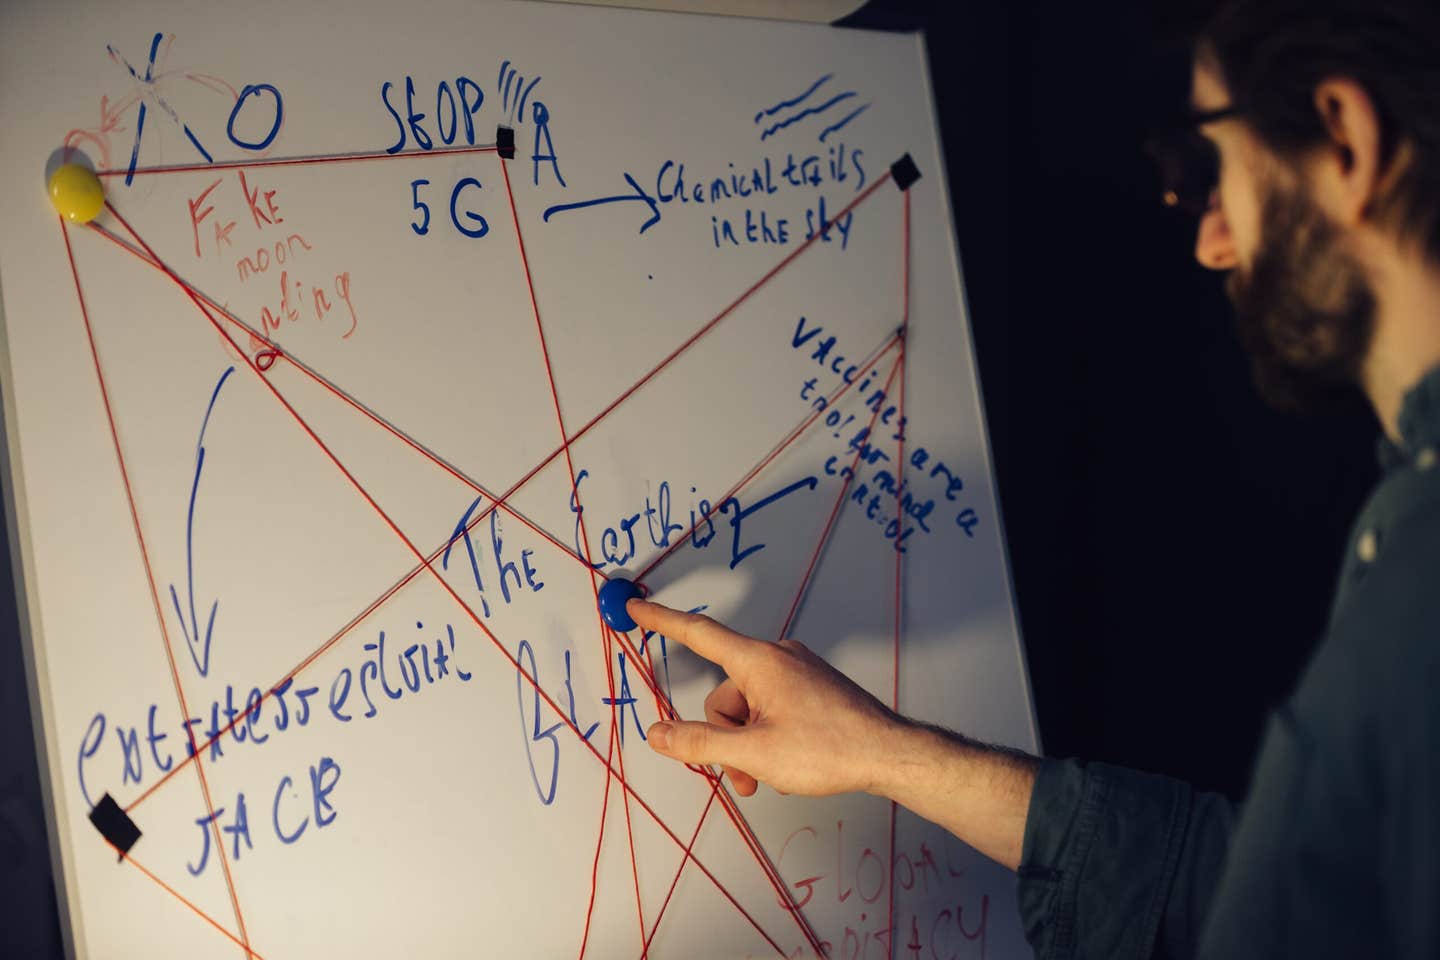 STOP
5G
A
FAKE
moon
landing
Chemical trails
in the sky
Vaccines are a
tool for mind
control
The Earth is
FLAT
extraterrestrial
rACE
Global